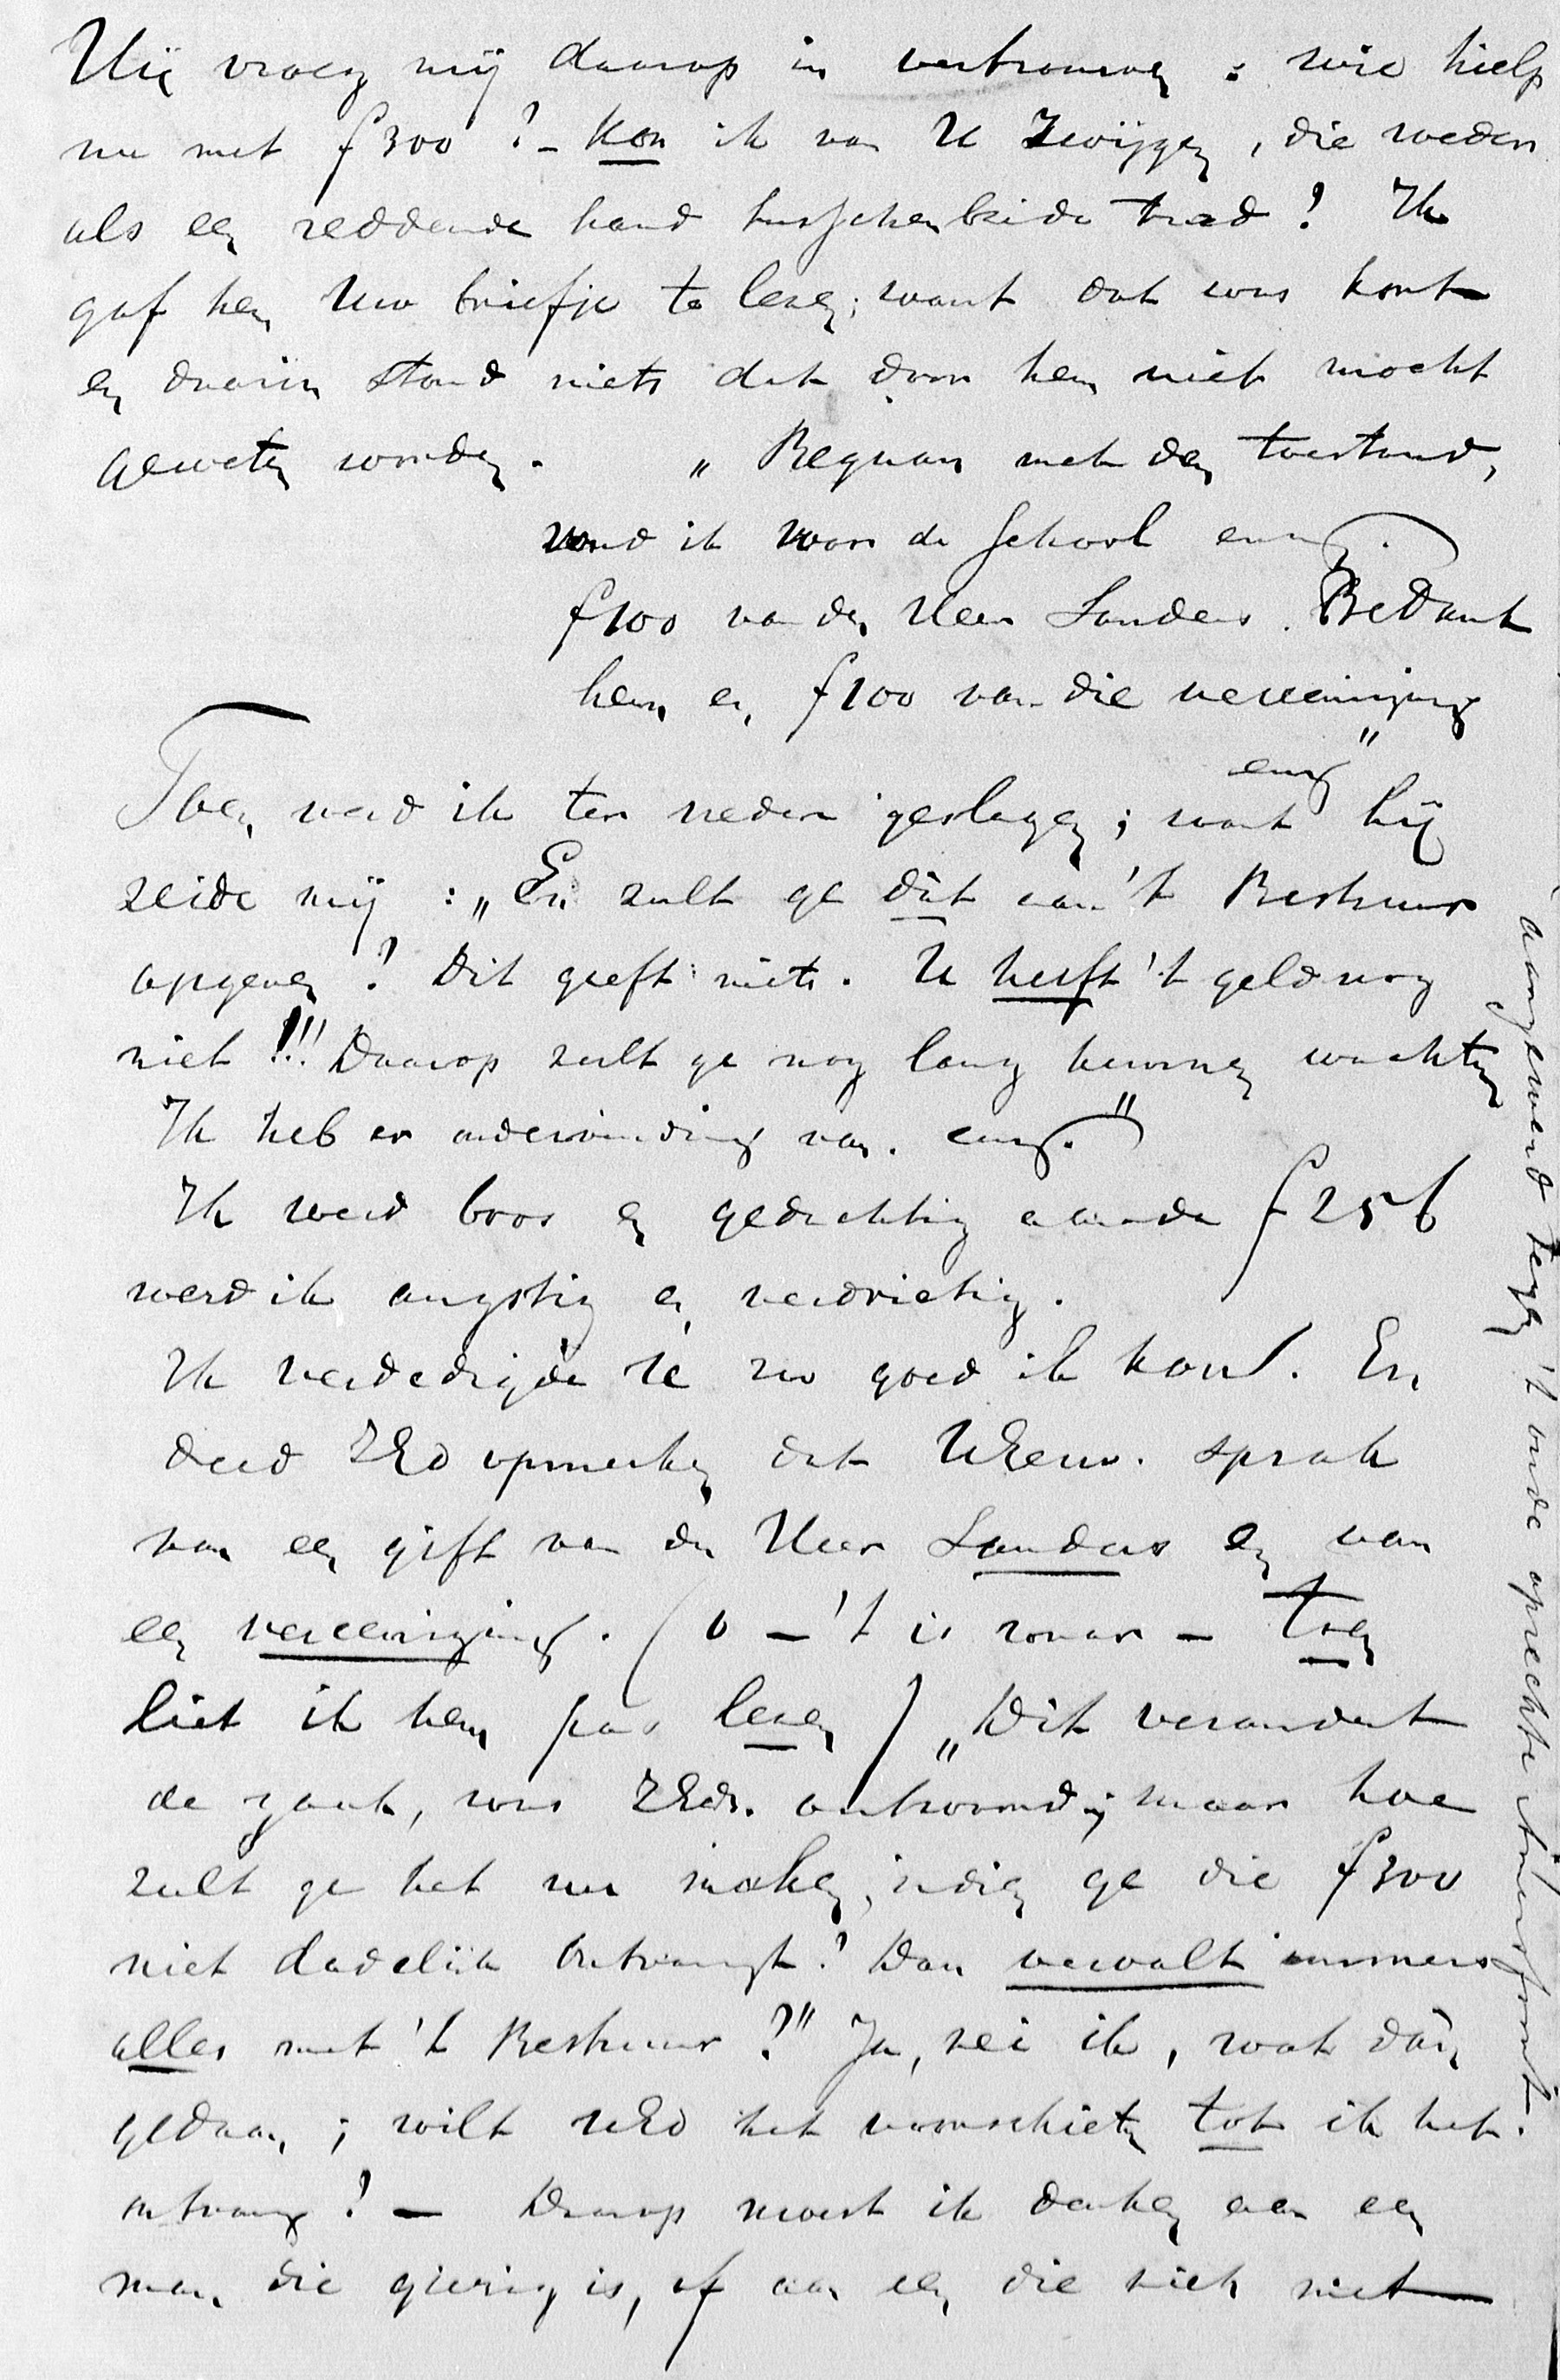 Hij vroeg mij daarop in vertrouwen: wie hielp
nu met f 300? - Kon ik van U zwijgen, die weder
als een reddende hand tusschenbeide trad? Ik
gaf hem Uw briefje te lezen; want dat was kort
en daarin stond niets dat door hem niet mocht
geweten worden. „Begaan met den toestand,
vond ik voor de school enz.
f 100 van den Heer Sanders. Bedank
hem en f 100 van die vereeniging
enz"
Toen werd ik ter neder geslagen; want hij
zeide mij: „En zult ge dit aan 't Bestuur
opgeven? Dit geeft niets. U heeft 't geld nog
niet!!! Daarop zult ge nog lang kunnen wachten
Ik heb er ondervinding van. enz."
Ik werd boos en gedachtig aan de f 256
werd ik angstig en verdrietig.
Ik verdedigde U zoo goed ik kon. En
deed ZEd opmerken dat UEerw. sprak
van een gift van den Heer Sanders en van
een vereeniging. (o - 't is waar - toen
liet ik hem pas lezen) „Dit verandert
de zaak, was ZEds. antwoord; maar hoe
zult ge het nu maken, indien ge die f 300
niet dadelijk ontvangt? Dan vervalt immers
alles met 't Bestuur?" Ja, zei ik, wat dán
gedaan; wilt UEd het voorschieten tot ik het
ontvang? - Daarop moest ik denken aan een
man die gierig is, of aan een die zich niet
aangewend tegen 't oude oprechte